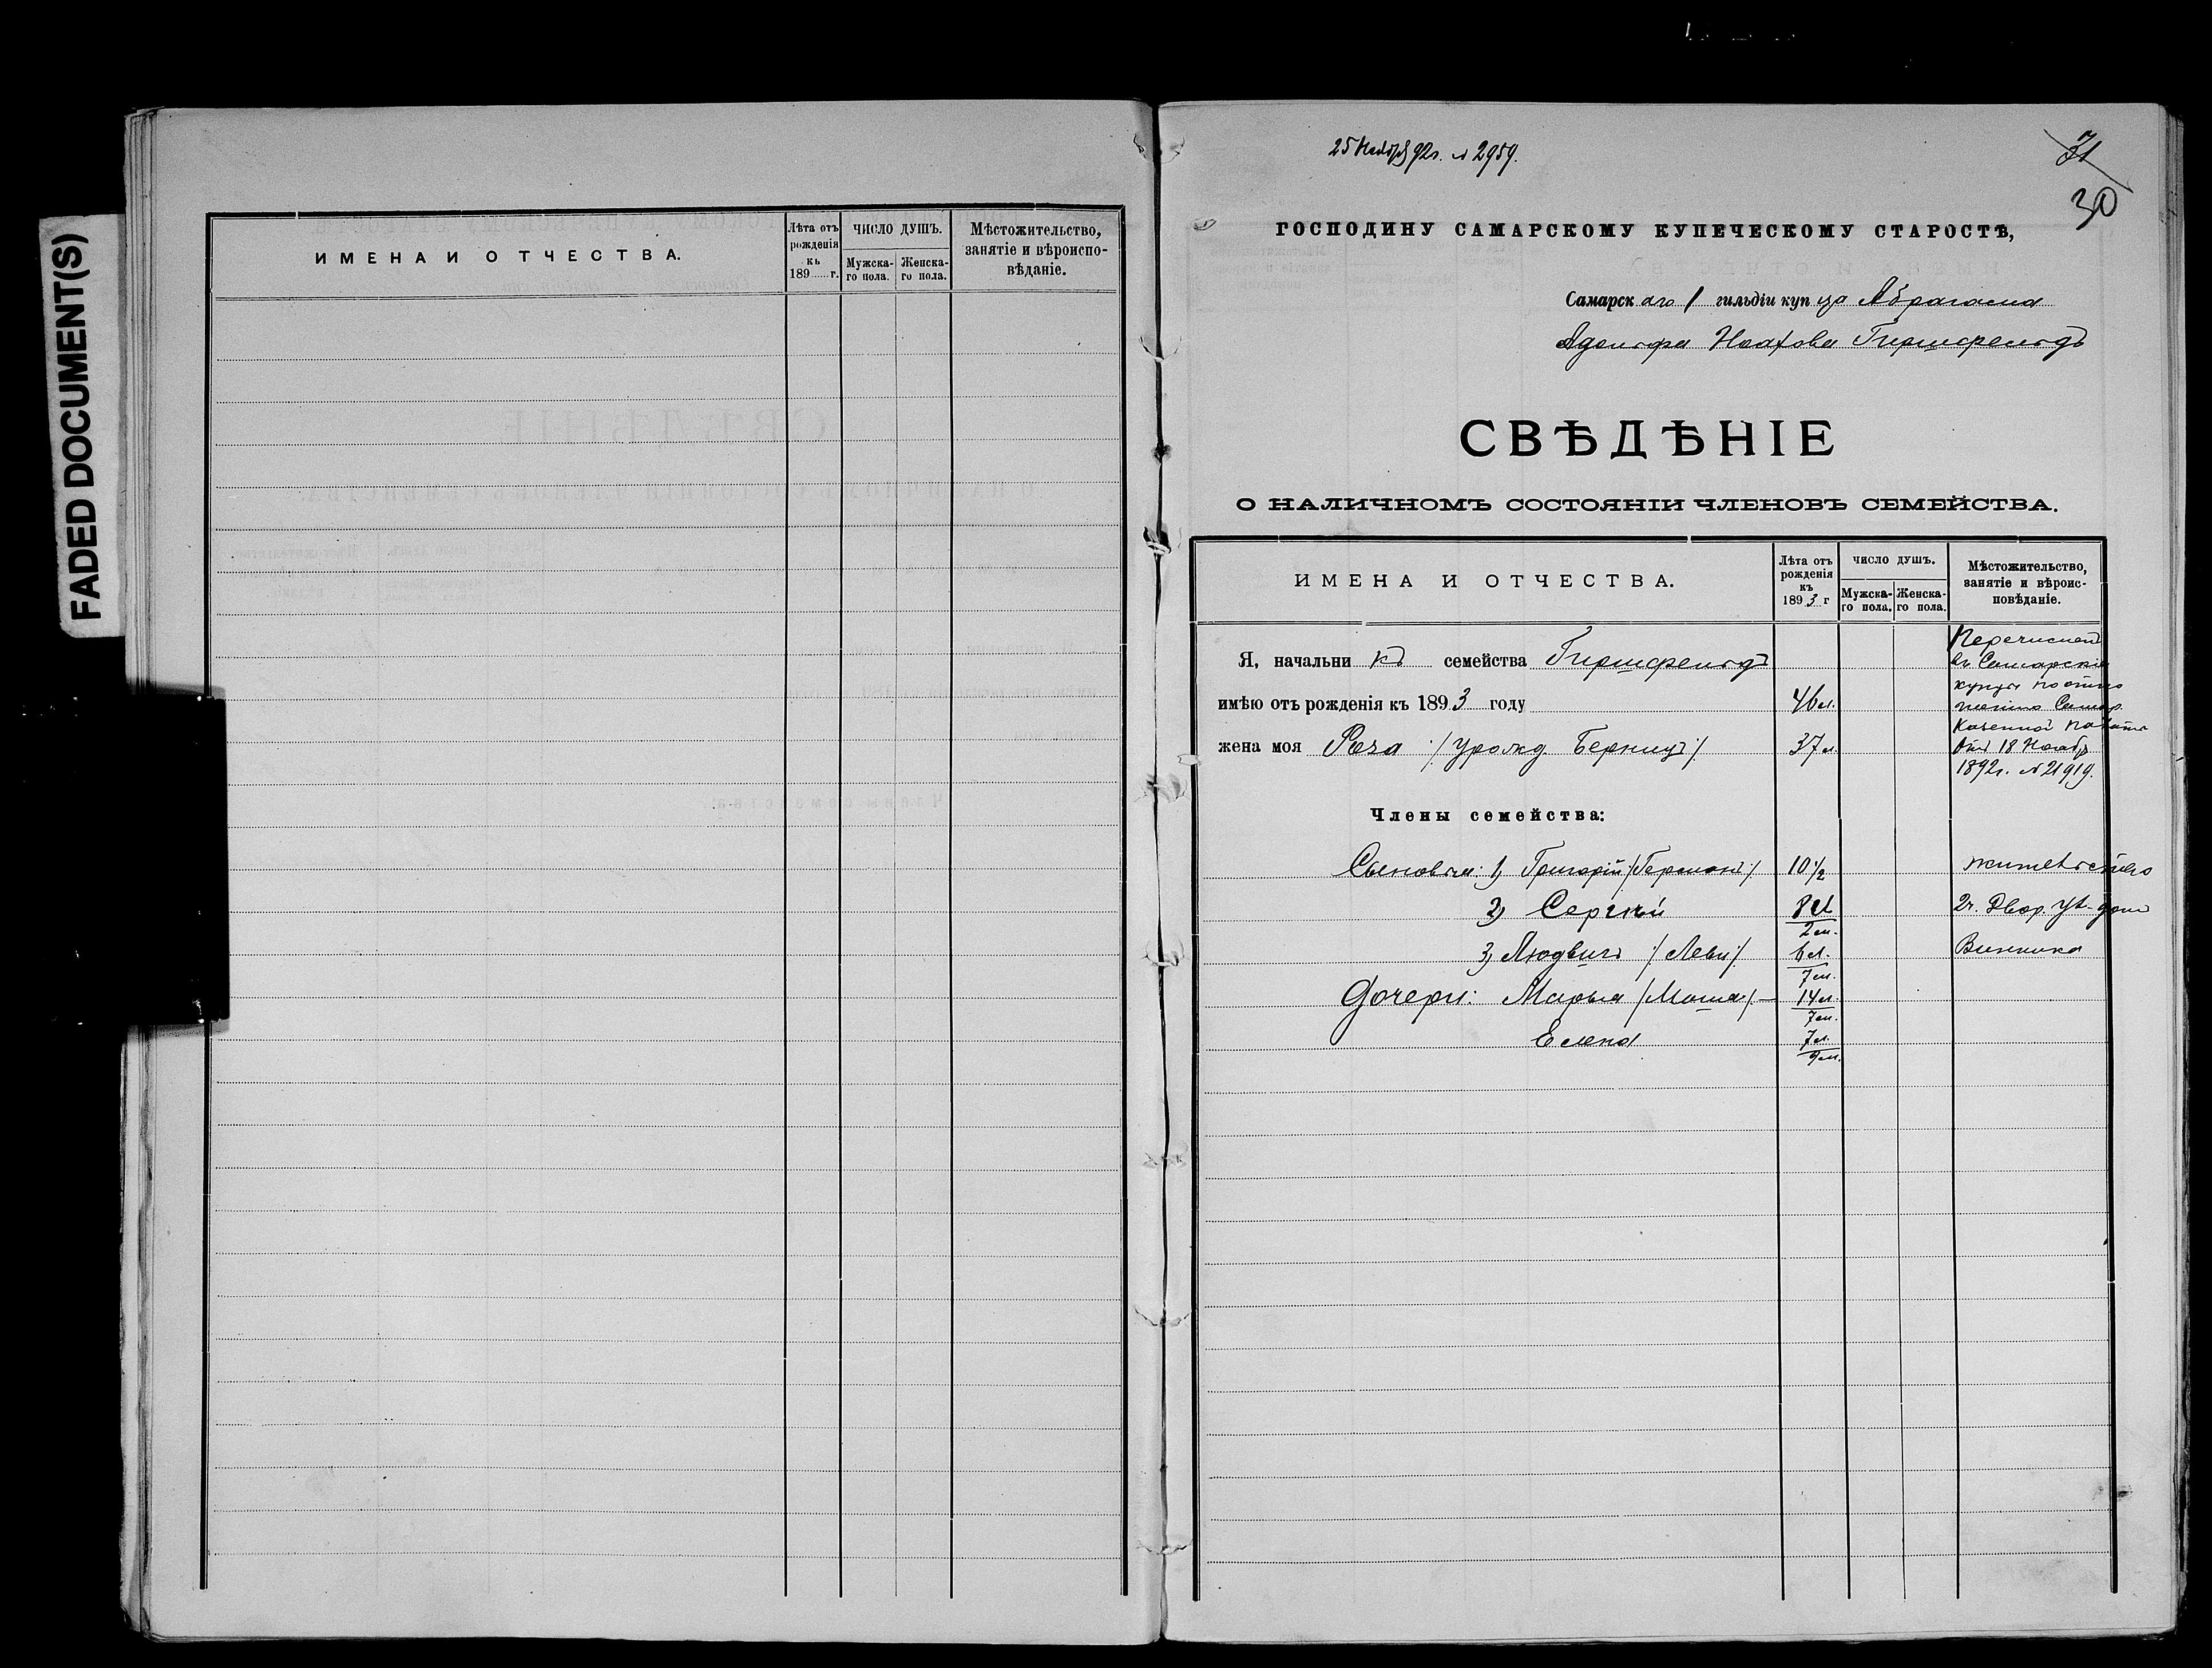 FADED DOCUMENT(S)
ИМЕНА И ОТЧЕСТВА.
Лѣта отъ рожденія къ 189 г.
ЧИСЛО ДУШЪ.
Мужска-го пола.
Женска-го пола.
Мѣстожительство, занятіе и вѣроиспо-вѣданіе.
25 Ноября 92 г. № 2959.
31
30
ГОСПОДИНУ САМАРСКОМУ КУПЕЧЕСКОМУ СТАРОСТѢ,
Самарскаго 1 гильдіи купца Абрагама
Адольфа Ноахова Гиршфельдъ
СВѢДѢНІЕ
О НАЛИЧНОМЪ СОСТОЯНІИ ЧЛЕНОВЪ СЕМЕЙСТВА.
ИМЕНА И ОТЧЕСТВА.
Лѣта отъ рожденія къ 1893 г
ЧИСЛО ДУШЪ.
Мужска-го пола.
Женска-го пола.
Мѣстожительство, занятіе и вѣроис-повѣданіе.
Я, начальникъ семейства Гиршфельдъ
имѣю отъ рожденія къ 1893 году 46 л.
жена моя Роза /: урожд. Берницъ :/ 37 л.
Перечисленъ
въ Самарскіе
купцы по отно
шенію Самар.
Казенной Палаты
отъ 18 Нояб.
1892 г. № 21919.
Члены семейства:
Сыновья: 1, Григорій /: Германъ :/ 10 1/2 жительство
2, Сергѣй 8 л. 2 м. 2 ч. Двор. ул. домъ
3, Людвигъ /: Леви :/ 6 л. 7 м. Винника
Дочери: Марья /: Маша :/ — 14 л. 7 м.
Елена 7 л. 9 м.